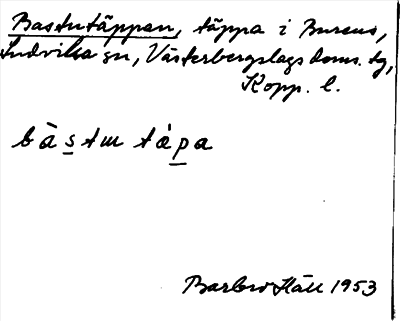 Bastutäppan, täppa i Burens,
Ludvika sn, Västerbergslags doms. tg,
Kopp. l.
bàstɯ tápa
Barbro Häll 1953